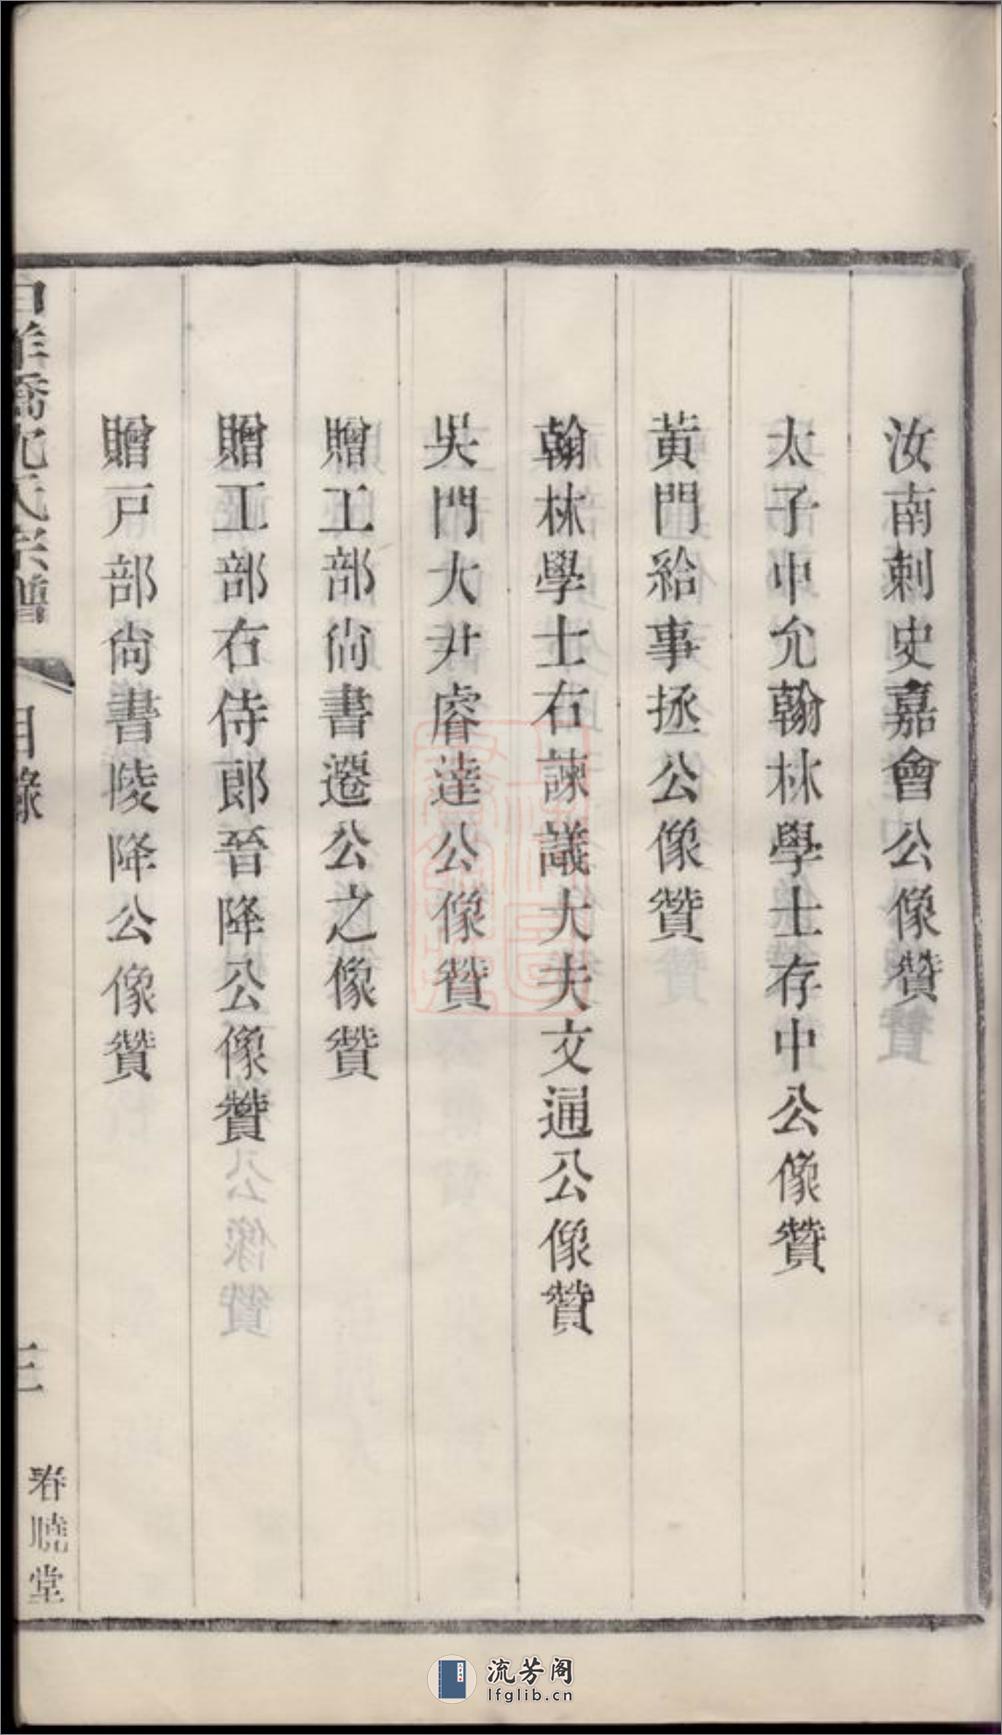 汝南刺史嘉會公像贊
太子中允翰林學士存中公像贊
黃門給事拯公像贊
翰林學士右諫議大夫文通公像贊
吳門大尹睿達公像贊
贈工部尚書遷公之像贊
贈工部右侍郎晉降公像贊
贈戸部尚書陵降公像贊
氏宗譜
目錄
三
春曉堂
流芳阁
lfglib.cn